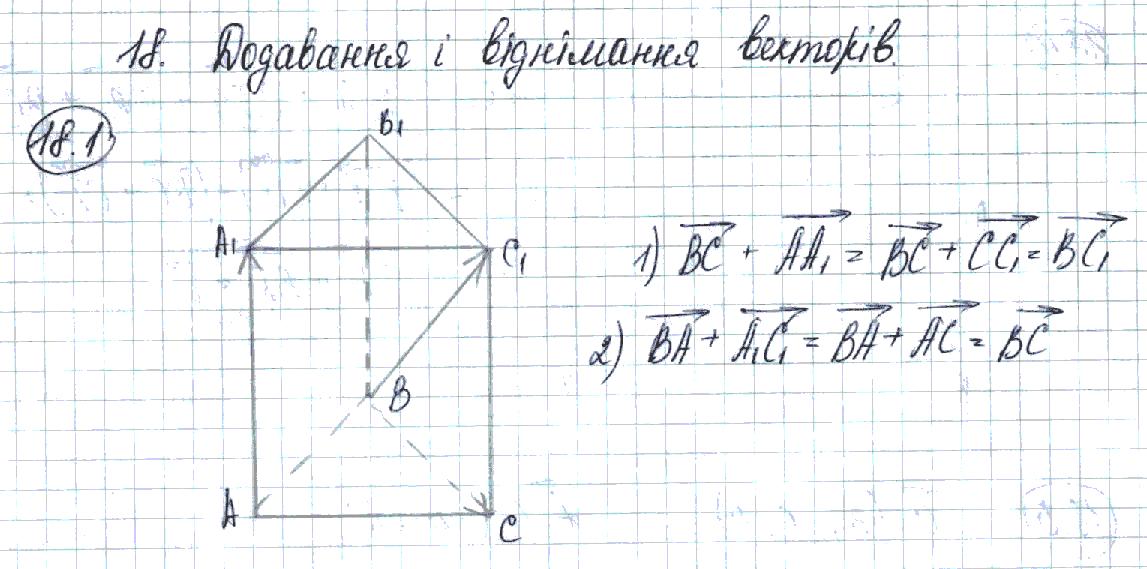 18. Додавання і віднімання векторів.
18.1
B₁
A₁
C₁
1) BC + AA₁ = BC + CC₁ = BC₁
2) BA + A₁C₁ = BA + AC = BC
B
A
C